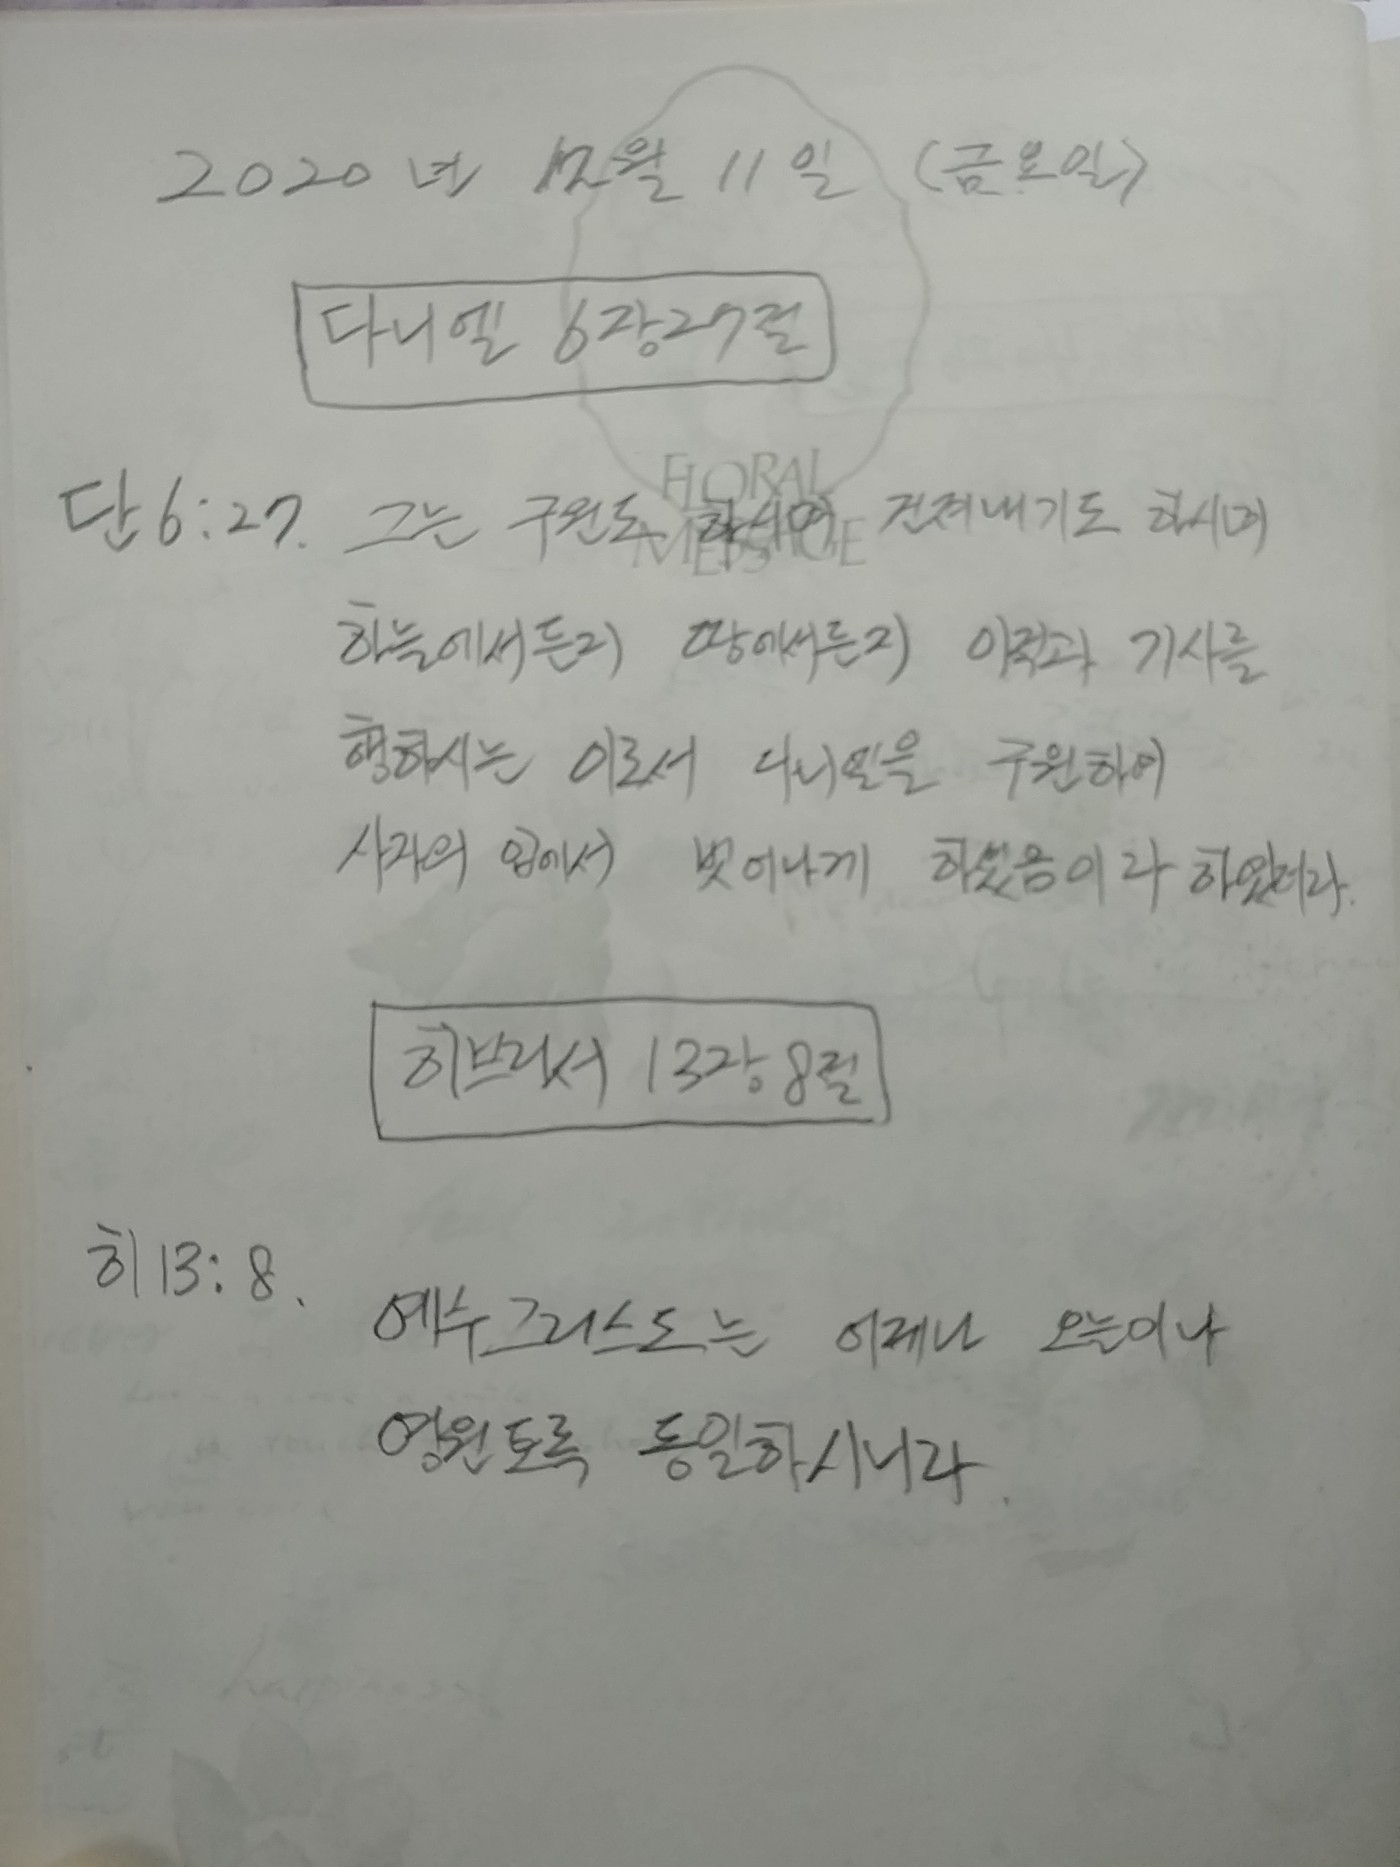 2020년 12월 11일 (금요일)
다니엘 6장27절
FLORAL
MESSAGE
단6:27. 그는 구원도 하시며 건져내기도 하시며
하늘에서든지 땅에서든지 이적과 기사를
행하시는 이로서 다니엘을 구원하여
사자의 입에서 벗어나게 하셨음이라 하였더라.
히브리서 13장8절
히13:8.
예수그리스도는 어제나 오늘이나
영원토록 동일하시니라.